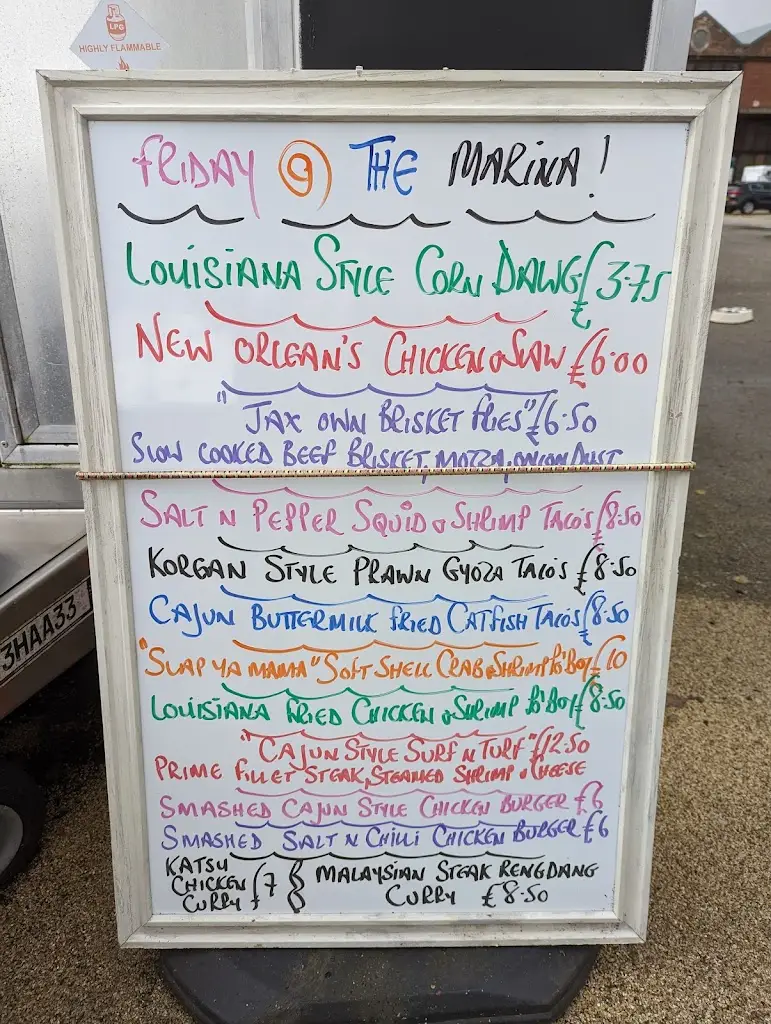 LPG
HIGHLY FLAMMABLE
FRIDAY @ THE MARINA!
LOUISIANA STYLE CORN DAWG £3.75
NEW ORLEAN'S CHICKEN & SLAW £6.00
"JAX OWN BRISKET FRIES" £6.50
SLOW COOKED BEEF BRISKET, MOZZA, ONION DUST
SALT N PEPPER SQUID & SHRIMP TACO'S £8.50
KOREAN STYLE PRAWN GYOZA TACO'S £8.50
CAJUN BUTTERMILK FRIED CATFISH TACO'S £8.50
"SLAP YA MAMA" SOFT SHELL CRAB & SHRIMP PO'BOY £10
LOUISIANA FRIED CHICKEN & SHRIMP PO'BOY £8.50
"CAJUN STYLE SURF N TURF" £12.50
PRIME FILLET STEAK, STEAMED SHRIMP & CHEESE
SMASHED CAJUN STYLE CHICKEN BURGER £6
SMASHED SALT N CHILLI CHICKEN BURGER £6
KATSU CHICKEN CURRY £7
MALAYSIAN STEAK RENGDANG
CURRY £8.50
3HAA33